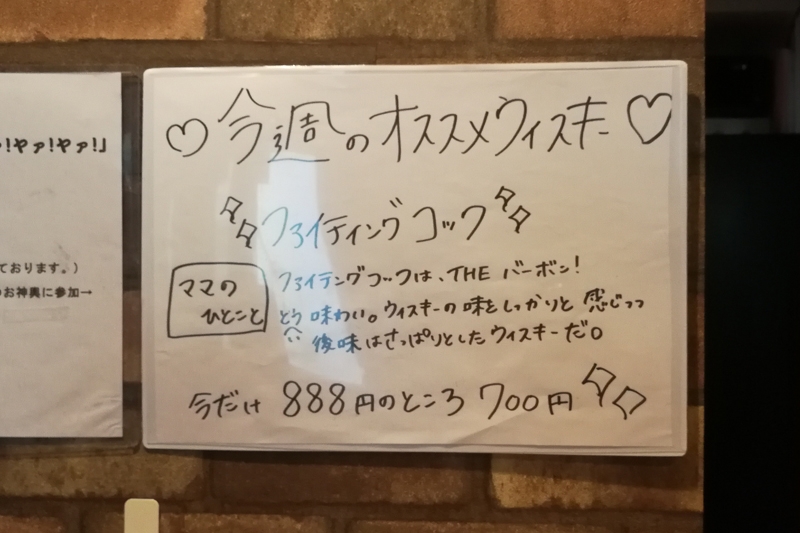 !ヤァ!ヤァ!」
ております。)
のお神輿に参加→
♡今週のオススメウィスキー♡
ファイティングコック
ママの
ひとこと
ファイテングコックは、THE バーボン!
という味わい。ウィスキーの味をしっかりと感じつつ
後味はさっぱりとしたウィスキーだ。
今だけ 888円のところ 700円